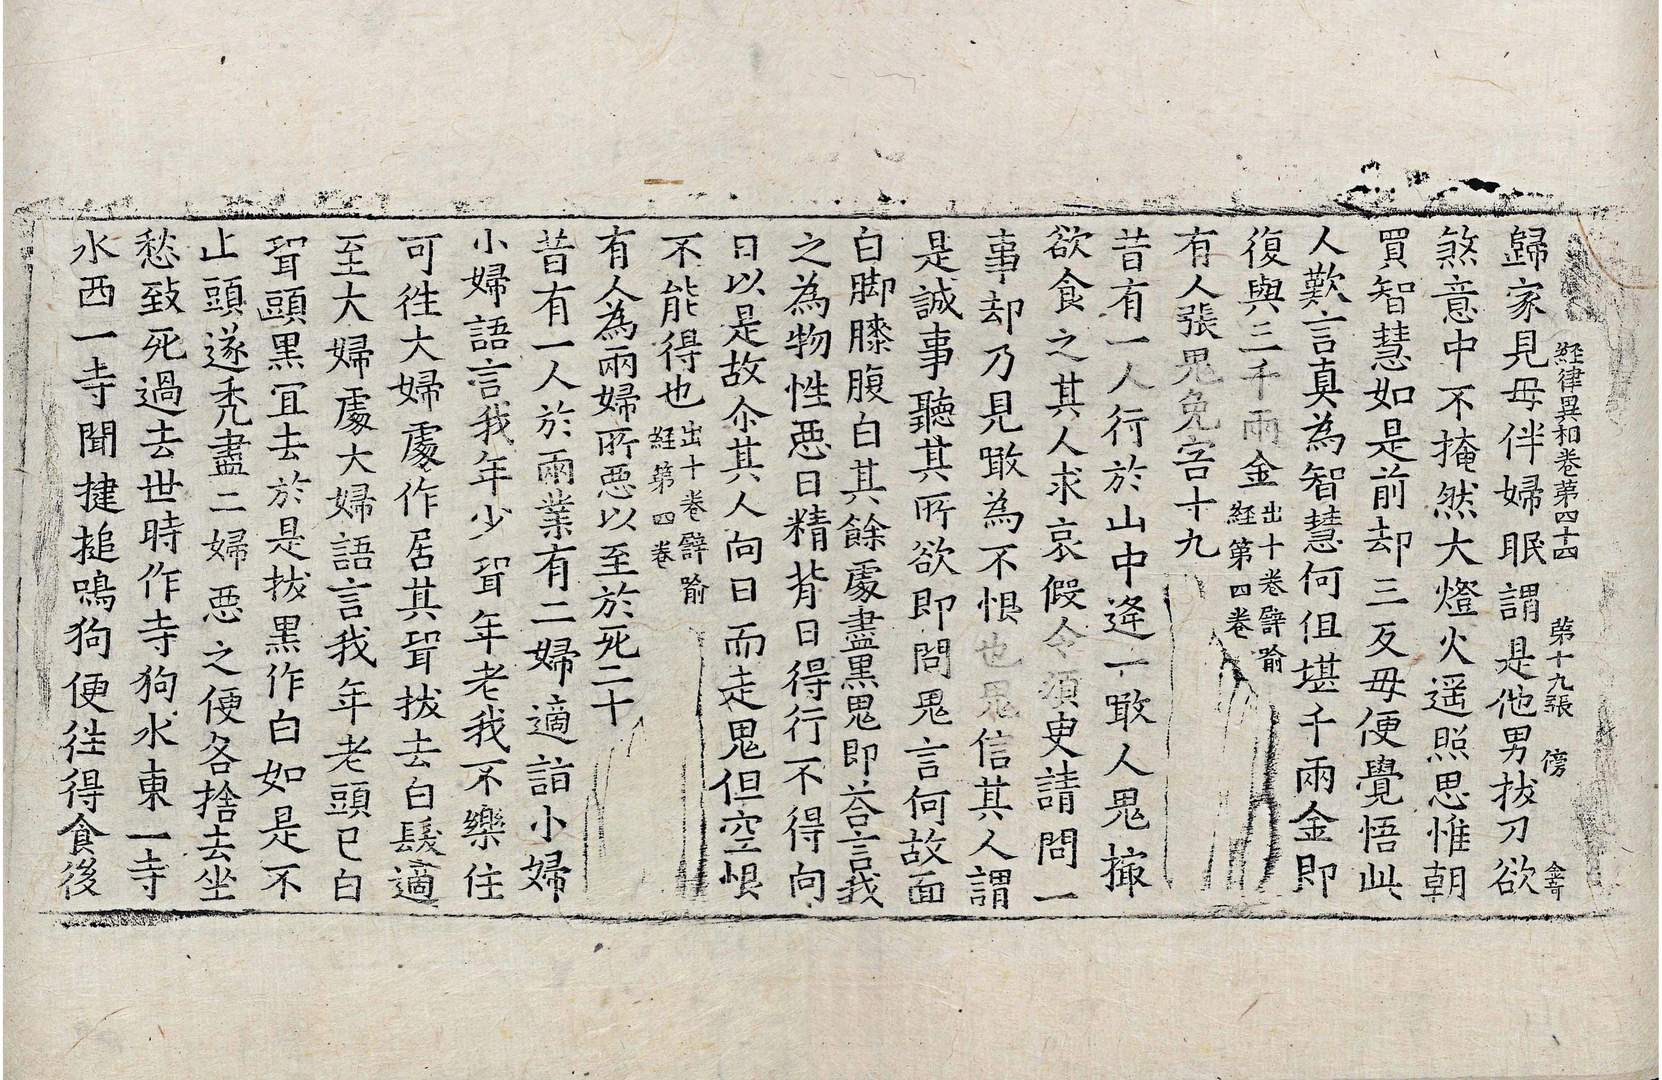 経律異相卷第四十四 第十九張 傍
歸家見母伴婦眠謂是他男拔刀欲
煞意中不掩然大燈火遥照思惟朝
買智慧如是前却三反母便覺悟此
人歎言真為智慧何但堪千兩金即
復與三千兩金出十卷譬喻
経第四卷
有人張鬼免害十九
昔有一人行於山中逢一噉人鬼撮
欲食之其人求哀假令須臾請問一
事却乃見噉為不恨也鬼信其人謂
是誠事聽其所欲即問鬼言何故面
白脚膝腹白其餘處盡黑鬼即荅言我
之為物性惡日精背日得行不得向
日以是故尒其人向日而走鬼但空恨
不能得也出十卷譬喻
経第四卷
有人為兩婦所惡以至於死二十
昔有一人於兩業有二婦適詣小婦
小婦語言我年少聟年老我不樂住
可往大婦處作居其聟拔去白髮適
至大婦處大婦語言我年老頭已白
聟頭黑宜去於是拔黑作白如是不
止頭遂禿盡二婦惡之便各捨去坐
愁致死過去世時作寺狗水東一寺
水西一寺聞揵搥鳴狗便往得食後